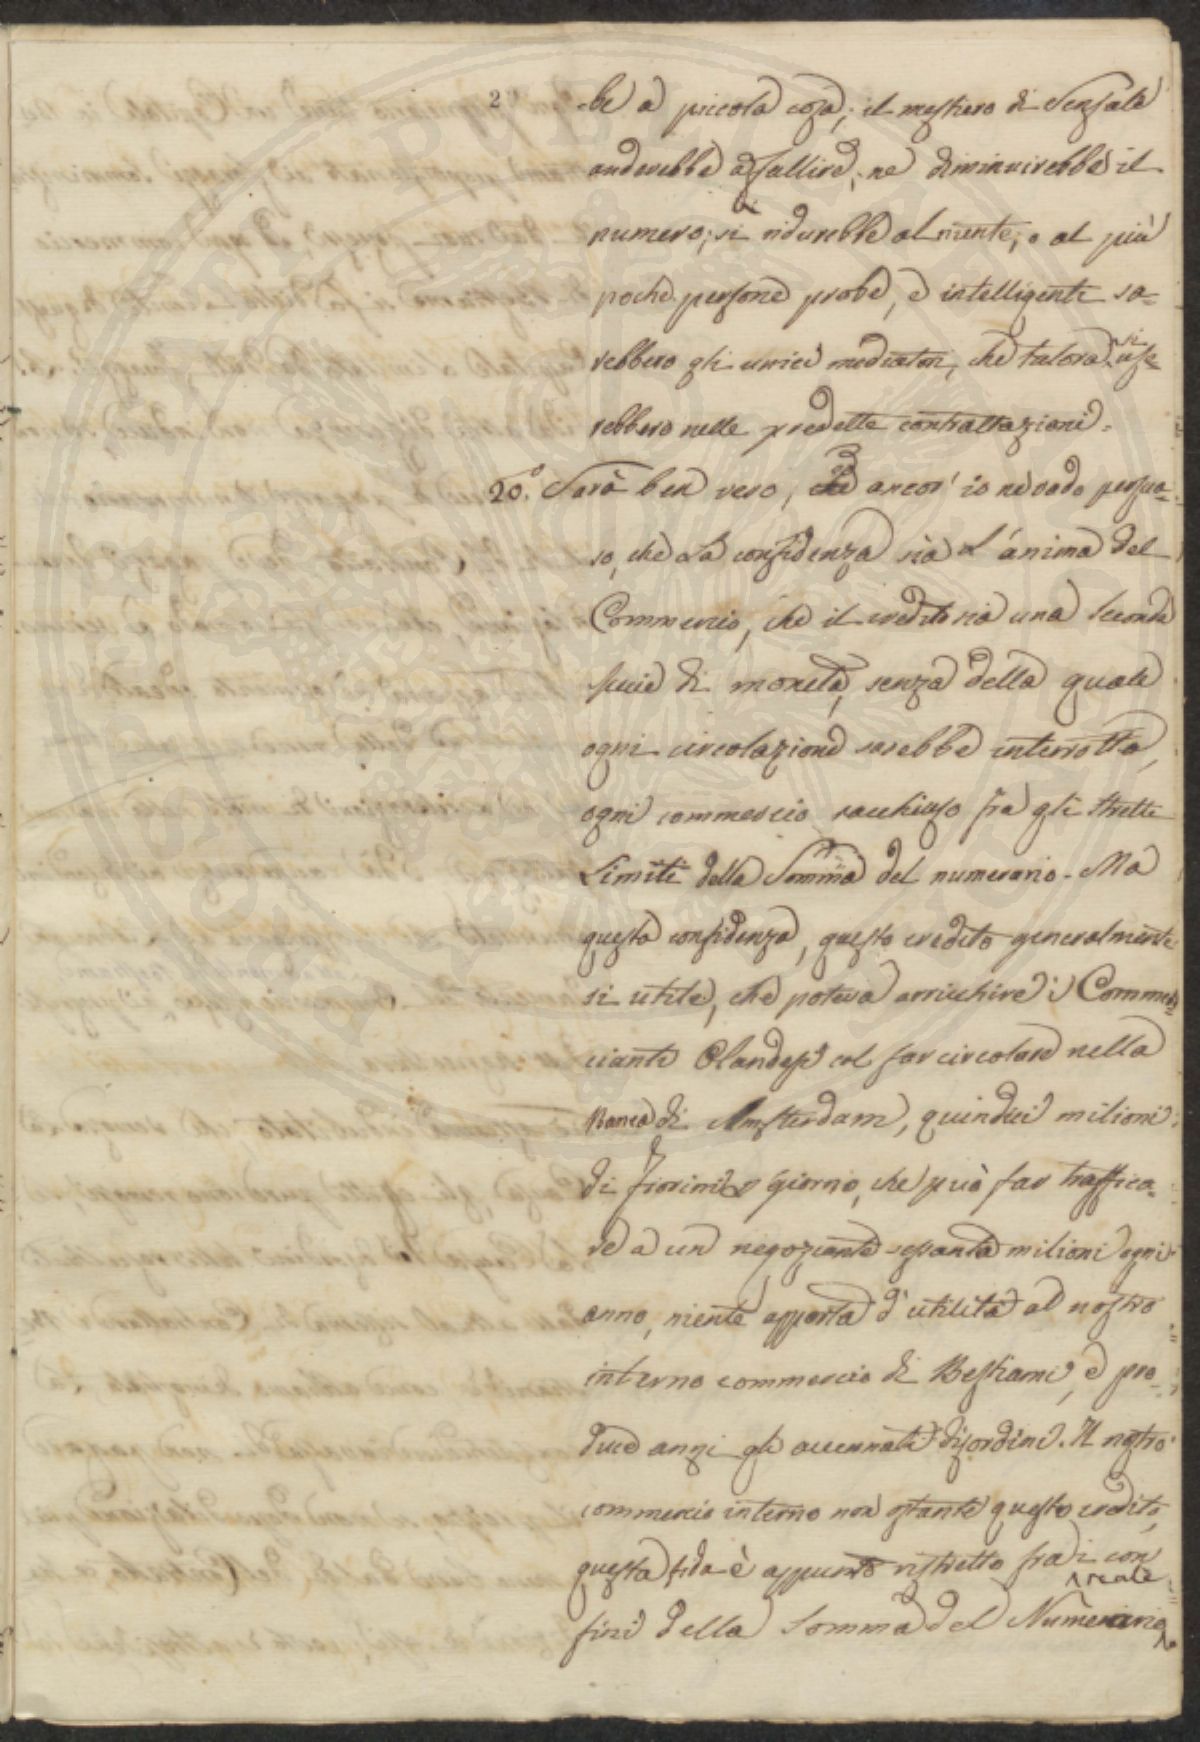 2
-be a piccola cosa; il mestiero di Sensale
anderebbe a fallire, ne diminuirebbe il
numero; si ridurebbe al niente, o al più
poche persone probe, e intelligenti sa=
rebbero gli unici mediatori, che talora si use=
rebbero nelle predette contrattazioni.
20.° Sarà ben vero, ed ancor' io ne vado persua=
so, che la confidenza sia l'ánima del
Commercio, che il credito sia una seconda
specie di moneta, senza della quale
ogni circolazione sarebbe interrotta,
ogni commercio racchiuso fra gli stretti
Limiti della Somma del numerario. Ma
questa confidenza, questo credito generalmente
si utile, che poteva arricchire i Commer=
cianti Olandesi col far circolare nella
Banca di Amsterdam, quindici milioni
di fiorini il giorno, che può far traffica=
re a un negoziante sessanta milioni ogni
anno, niente apporta d'utilità al nostro
interno commercio di Bestiami, e pro=
duce anzi gli accennati disordini. Il nostro
commercio interno non ostante questo credito,
questa fida è appunto ristretto fra i con
fini della Somma del reale Numerario,